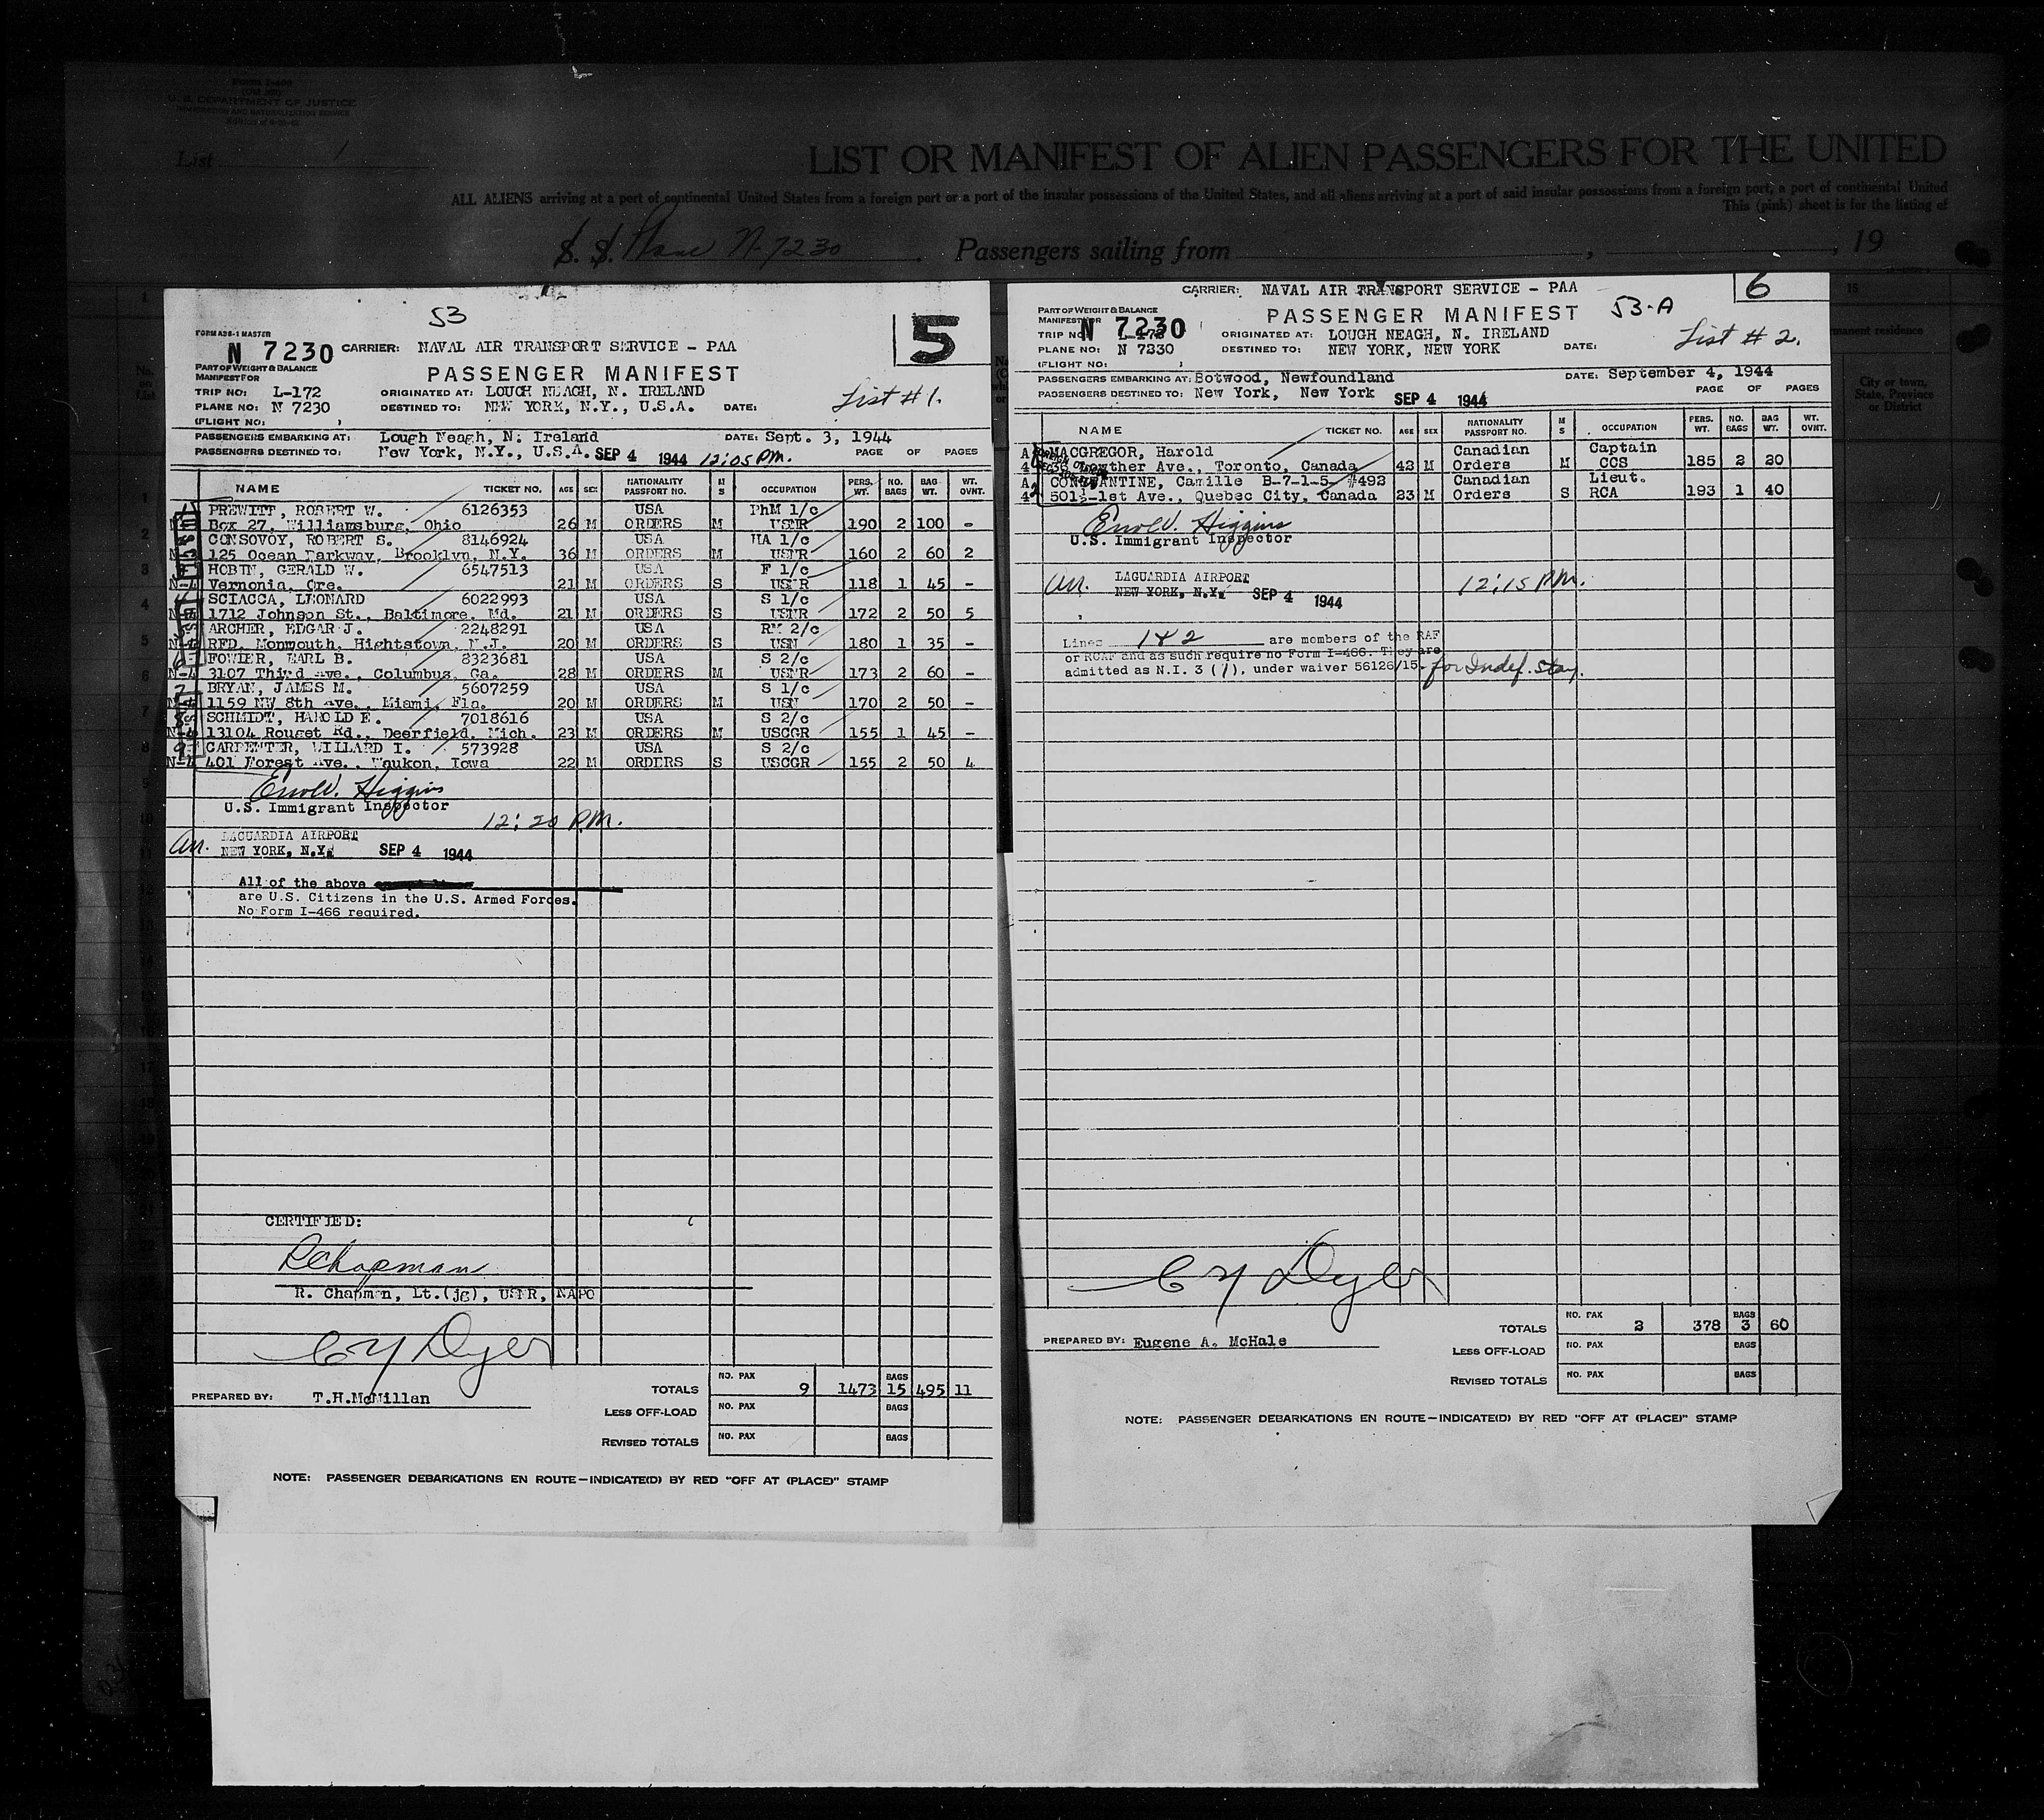 Form I-466
U. S. DEPARTMENT OF JUSTICE
IMMIGRATION AND NATURALIZATION SERVICE
List 1
LIST OR MANIFEST OF ALIEN PASSENGERS FOR THE UNITED
ALL ALIENS arriving at a port of continental United States from a foreign port or a port of the insular possessions of the United States, and all aliens arriving at a port of said insular possessions from a foreign port, a port of continental United
This (pink) sheet is for the listing of
S. S. Plane N-7230 Passengers sailing from , , 19
53
5
FORM ABS-1 MASTER
N 7230 CARRIER: NAVAL AIR TRANSPORT SERVICE - PAA
PART OF WEIGHT & BALANCE
MANIFEST FOR
PASSENGER MANIFEST
TRIP NO: L-172 ORIGINATED AT: LOUGH NEAGH, N. IRELAND
PLANE NO: N 7230 DESTINED TO: NEW YORK, N.Y., U.S.A. DATE: List # 1.
(FLIGHT NO: )
PASSENGERS EMBARKING AT: Lough Neagh, N. Ireland DATE: Sept. 3, 1944
PASSENGERS DESTINED TO: New York, N.Y., U.S.A. SEP 4 1944 12:05 PM. PAGE OF PAGES
NAME TICKET NO. AGE SEX NATIONALITY PASSPORT NO. M S OCCUPATION PERS. WT. NO. BAGS BAG WT. WT. OVNT.
PREWITT, ROBERT W. 6126353 USA PhM 1/c
Box 27, Williamsburg, Ohio 26 M ORDERS M USNR 190 2 100 -
CONSOVOY, ROBERT S. 8146924 USA HA 1/c
125 Ocean Parkway, Brooklyn, N.Y. 36 M ORDERS M USNR 160 2 60 2
HOBIN, GERALD W. 6547513 USA F 1/c
Vernonia, Ore. 21 M ORDERS S USNR 118 1 45 -
SCIACCA, LEONARD 6022993 USA S 1/c
1712 Johnson St., Baltimore, Md. 21 M ORDERS S USNR 172 2 50 5
ARCHER, EDGAR J. 2248291 USA RM 2/c
RFD, Monmouth, Hightstown, N.J. 20 M ORDERS S USN 180 1 35 -
FOWLER, EARL B. 8323681 USA S 2/c
3107 Third Ave., Columbus, Ga. 28 M ORDERS M USNR 173 2 60 -
BRYAN, JAMES M. 5607259 USA S 1/c
1159 NW 8th Ave., Miami, Fla. 20 M ORDERS M USN 170 2 50 -
SCHMIDT, HAROLD E. 7018616 USA S 2/c
13104 Rouget Rd., Deerfield, Mich. 23 M ORDERS M USCGR 155 1 45 -
CARPENTER, WILLARD I. 573928 USA S 2/c
401 Forest Ave., Waukon, Iowa 22 M ORDERS S USCGR 155 2 50 4
Errol V. Higgins
U.S. Immigrant Inspector
12:20 P.M.
Arr. LAGUARDIA AIRPORT
NEW YORK, N.Y. SEP 4 1944
All of the above
are U.S. Citizens in the U.S. Armed Forces.
No Form I-466 required.
CERTIFIED:
R Chapman
R. Chapman, Lt.(jg), USNR, NAPO
C Y Dyer
PREPARED BY: T.H.McMillan
TOTALS NO. PAX 9 1473 BAGS 15 495 11
LESS OFF-LOAD NO. PAX BAGS
REVISED TOTALS NO. PAX BAGS
NOTE: PASSENGER DEBARKATIONS EN ROUTE—INDICATE(D) BY RED "OFF AT (PLACE)" STAMP
CARRIER: NAVAL AIR TRANSPORT SERVICE - PAA
6
PART OF WEIGHT & BALANCE
MANIFEST FOR
PASSENGER MANIFEST 53-A
TRIP NO: L-172 N 7230 ORIGINATED AT: LOUGH NEAGH, N. IRELAND
PLANE NO: N 7230 DESTINED TO: NEW YORK, NEW YORK DATE: List # 2.
(FLIGHT NO: )
PASSENGERS EMBARKING AT: Botwood, Newfoundland DATE: September 4, 1944
PASSENGERS DESTINED TO: New York, New York SEP 4 1944 PAGE OF PAGES
NAME TICKET NO. AGE SEX NATIONALITY PASSPORT NO. M S OCCUPATION PERS. WT. NO. BAGS BAG WT. WT. OVNT.
MACGREGOR, Harold Canadian Captain
Lowther Ave., Toronto, Canada 42 M Orders M CCS 185 2 20
CONSTANTINE, Camille B-7-1-5 #492 Canadian Lieut.
501½-1st Ave., Quebec City, Canada 23 M Orders S RCA 193 1 40
Errol V. Higgins
U.S. Immigrant Inspector
Arr. LAGUARDIA AIRPORT 12:15 P.M.
NEW YORK, N.Y. SEP 4 1944
Lines 1 & 2 are members of the RAF
or RCAF and as such require no Form I-466. They are
admitted as N.I. 3 (1), under waiver 56126/15. for Indef. stay.
C Y Dyer
PREPARED BY: Eugene A. McHale
TOTALS NO. PAX 2 378 BAGS 3 60
LESS OFF-LOAD NO. PAX BAGS
REVISED TOTALS NO. PAX BAGS
NOTE: PASSENGER DEBARKATIONS EN ROUTE—INDICATE(D) BY RED "OFF AT (PLACE)" STAMP
15
permanent residence
City or town, State, Province or District